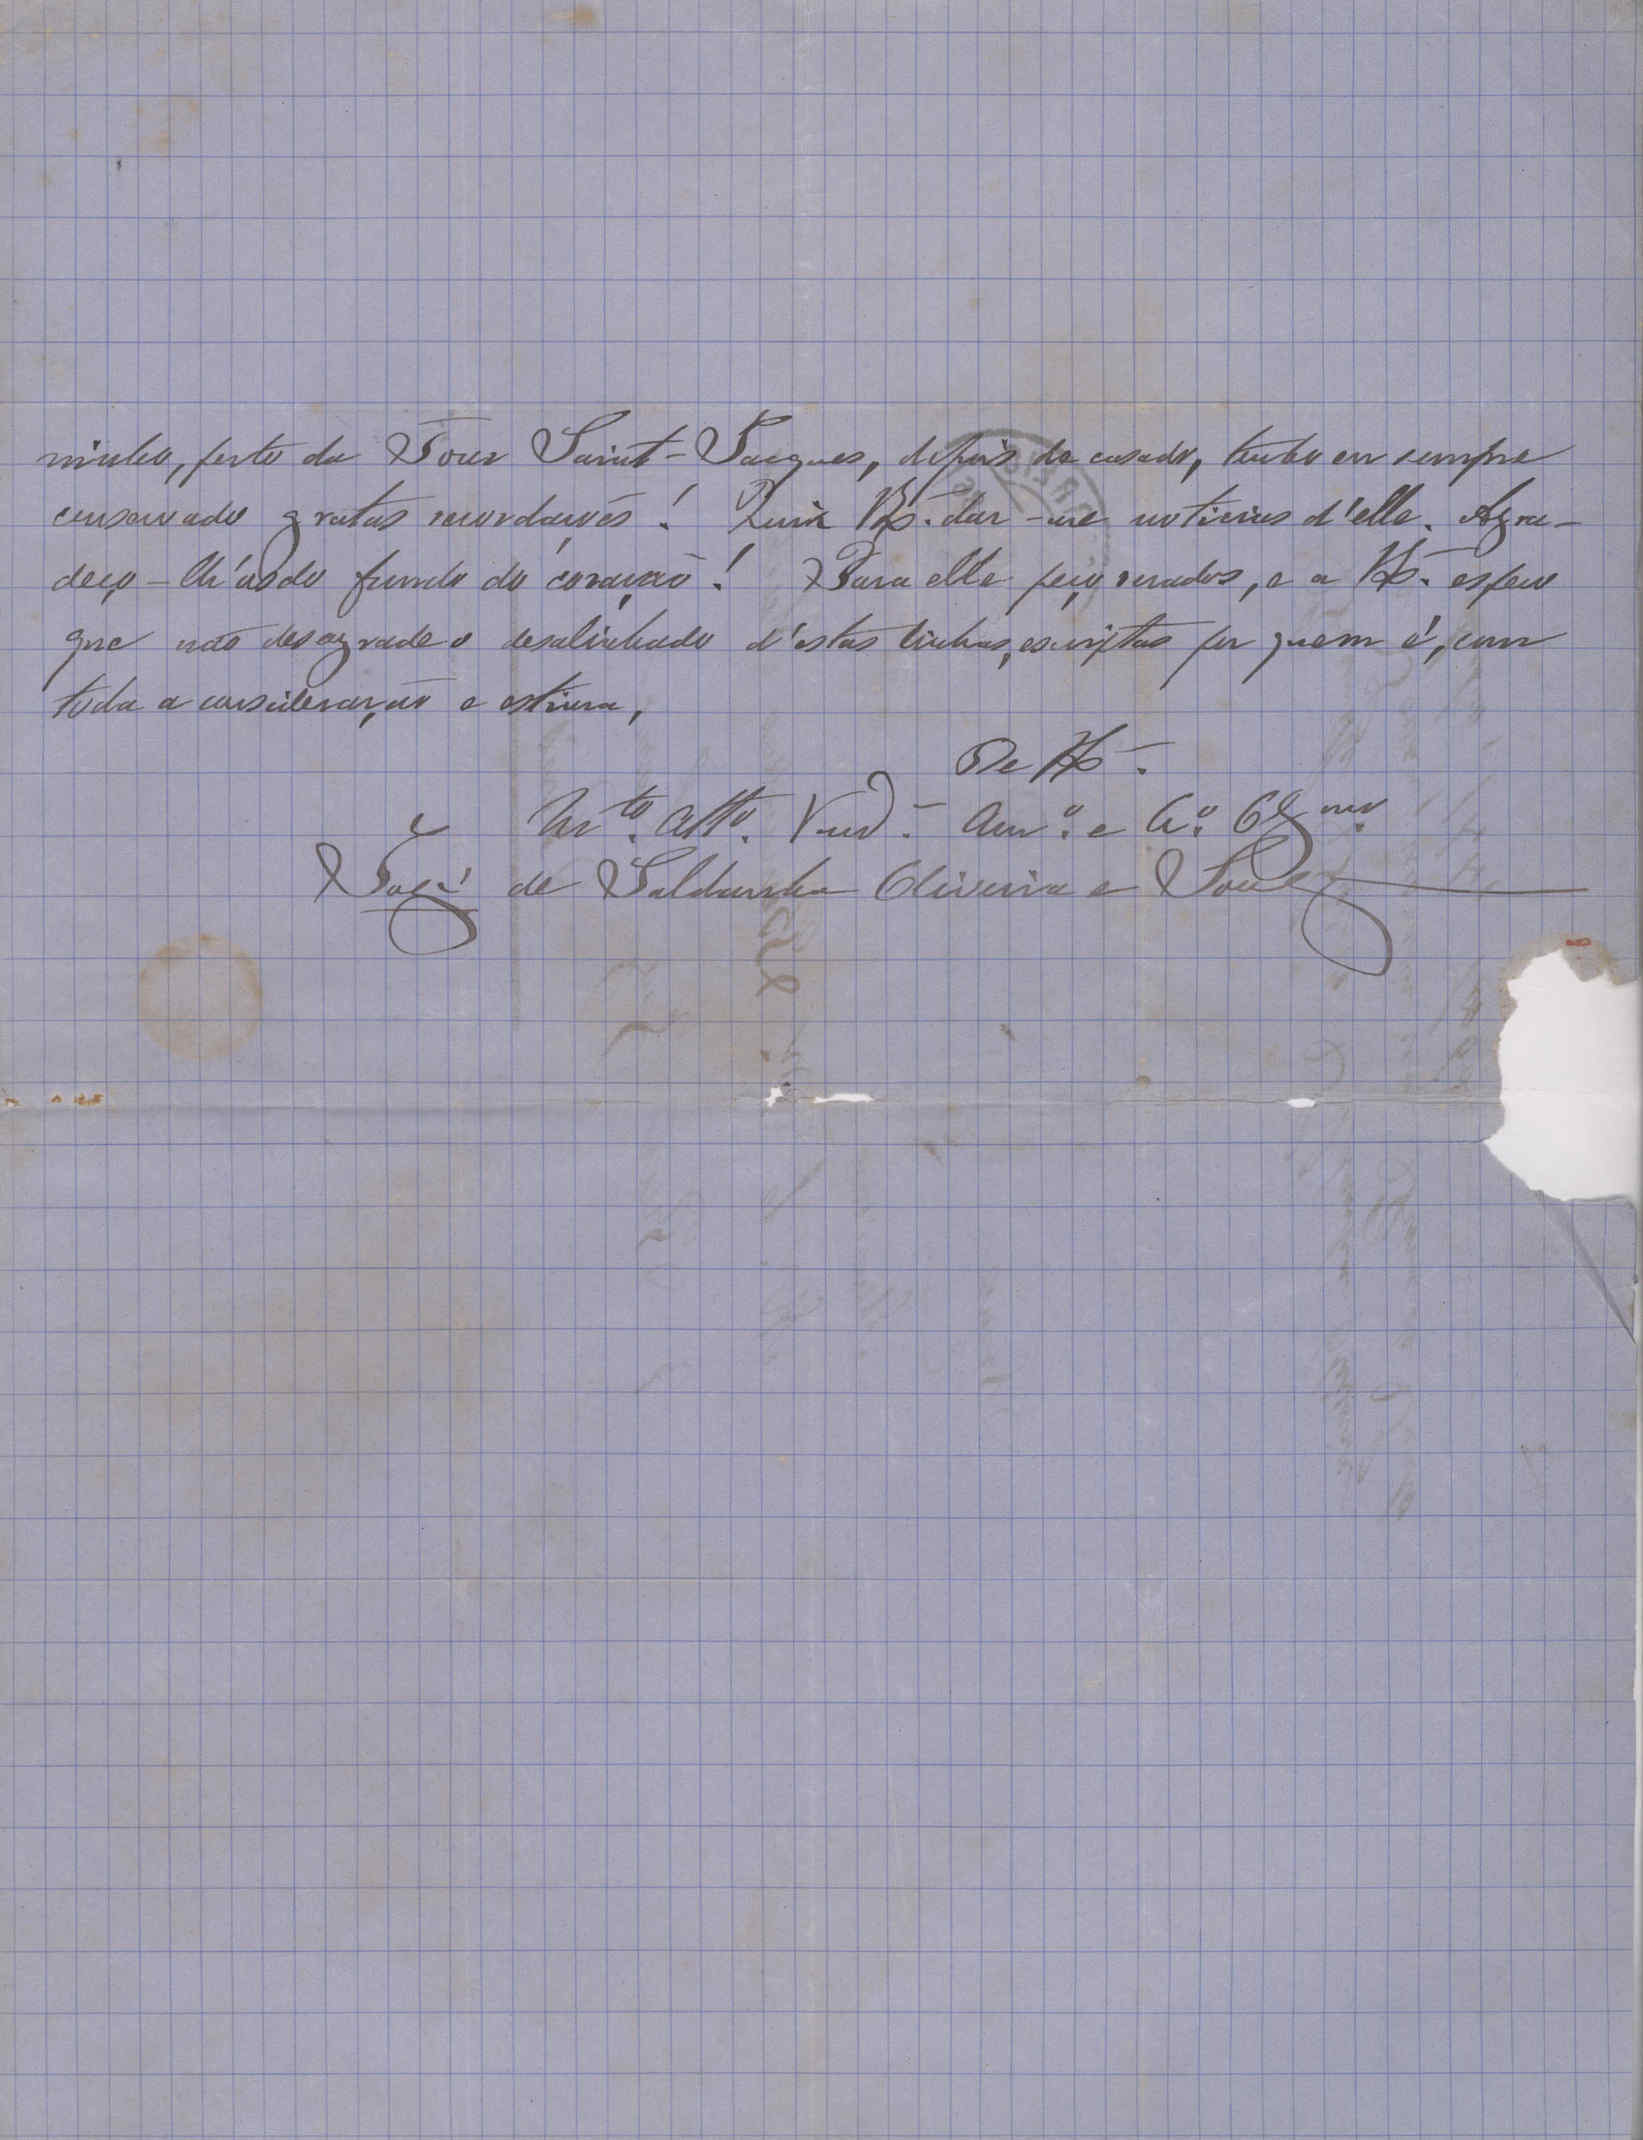 ninho, perto da Tour Saint-Jacques, depois de casado, tenho eu sempre
conservado gratas recordações! Queira V. S.ª dar-me noticias d'elle. Agra-
deço-lh'as do fundo do coração! Para elle peço recados, e a V. S.ª espero
que não desagrade o desalinhado d'estas linhas, escriptas por quem é, com
toda a consideração e estima,
De V. S.ª
M.to Att.o Vened.or Am.o e C.o Obg.mo
José de Saldanha Oliveira e Souza